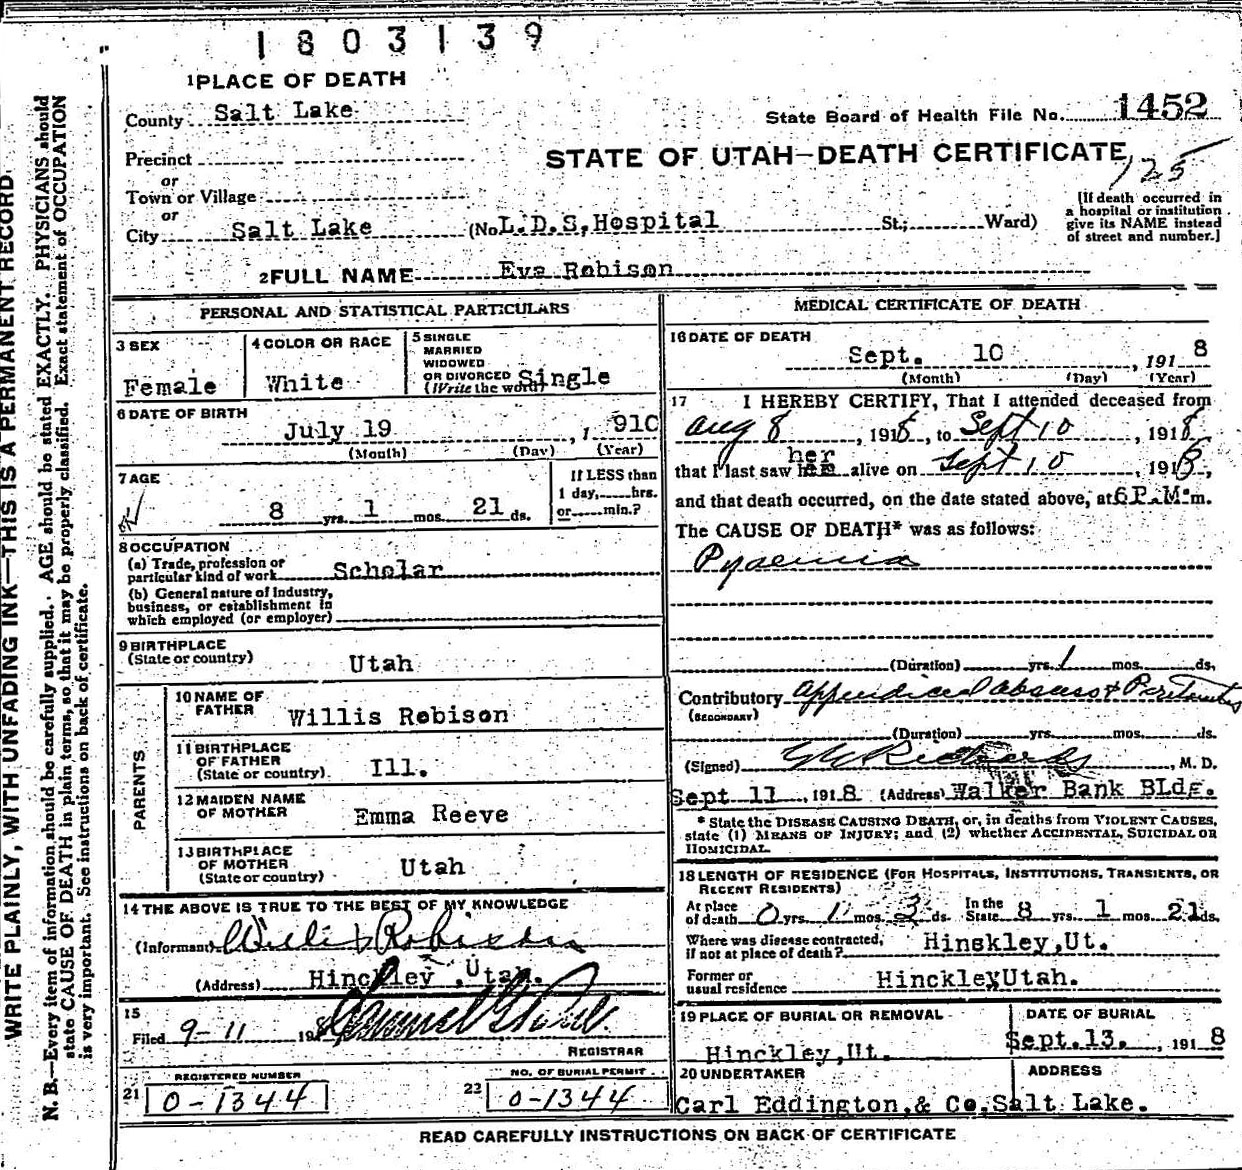 1803139
1 PLACE OF DEATH
County Salt Lake
State Board of Health File No. 1452
Precinct
STATE OF UTAH—DEATH CERTIFICATE
125
or
Town or Village
or
City Salt Lake (No. L.D.S, Hospital St.; Ward)
[If death occurred in
a hospital or institution
give its NAME instead
of street and number.]
2 FULL NAME Eva Robison
PERSONAL AND STATISTICAL PARTICULARS
3 SEX
Female
4 COLOR OR RACE
White
5 SINGLE
MARRIED
WIDOWED
OR DIVORCED
(Write the word) Single
6 DATE OF BIRTH
July 19, 1910
(Month) (Day) (Year)
7 AGE
8 yrs. 1 mos. 21 ds.
If LESS than
1 day, hrs.
or min.?
8 OCCUPATION
(a) Trade, profession or
particular kind of work Scholar
(b) General nature of Industry,
business, or establishment in
which employed (or employer)
9 BIRTHPLACE
(State or country) Utah
PARENTS
10 NAME OF
FATHER Willis Robison
11 BIRTHPLACE
OF FATHER
(State or country) Ill.
12 MAIDEN NAME
OF MOTHER Emma Reeve
13 BIRTHPLACE
OF MOTHER
(State or country) Utah
14 THE ABOVE IS TRUE TO THE BEST OF MY KNOWLEDGE
(Informant) Willis Robison
(Address) Hinckley, Utah.
15
Filed 9-11 1918
REGISTRAR
21 REGISTERED NUMBER
0-1344
22 NO. OF BURIAL PERMIT
0-1344
MEDICAL CERTIFICATE OF DEATH
16 DATE OF DEATH
Sept. 10, 1918
(Month) (Day) (Year)
17 I HEREBY CERTIFY, That I attended deceased from
Aug 8, 1918, to Sept 10, 1918
that I last saw her alive on Sept 10, 1918,
and that death occurred, on the date stated above, at 6 P.M. m.
The CAUSE OF DEATH* was as follows:
Pyaemia
(Duration) yrs. 1 mos. ds.
Contributory Appendiceal abscess & Peritonitis
(SECONDARY)
(Duration) yrs. mos. ds.
(Signed) G W Richards, M. D.
Sept 11, 1918 (Address) Walker Bank Bldg.
* State the DISEASE CAUSING DEATH, or, in deaths from VIOLENT CAUSES,
state (1) MEANS OF INJURY; and (2) whether ACCIDENTAL, SUICIDAL OR
HOMICIDAL.
18 LENGTH OF RESIDENCE (FOR HOSPITALS, INSTITUTIONS, TRANSIENTS, OR
RECENT RESIDENTS)
At place
of death 0 yrs. 1 mos. 3 ds. In the
State 8 yrs. 1 mos. 21 ds.
Where was disease contracted,
if not at place of death? Hinskley, Ut.
Former or
usual residence Hinckley, Utah.
19 PLACE OF BURIAL OR REMOVAL
Hinckley, Ut.
DATE OF BURIAL
Sept. 13., 1918
20 UNDERTAKER
ADDRESS
Carl Eddington, & Co, Salt Lake.
READ CAREFULLY INSTRUCTIONS ON BACK OF CERTIFICATE
WRITE PLAINLY, WITH UNFADING INK—THIS IS A PERMANENT RECORD
N. B.—Every item of information should be carefully supplied. AGE should be stated EXACTLY. PHYSICIANS should
state CAUSE OF DEATH in plain terms, so that it may be properly classified. Exact statement of OCCUPATION
is very important. See instructions on back of certificate.